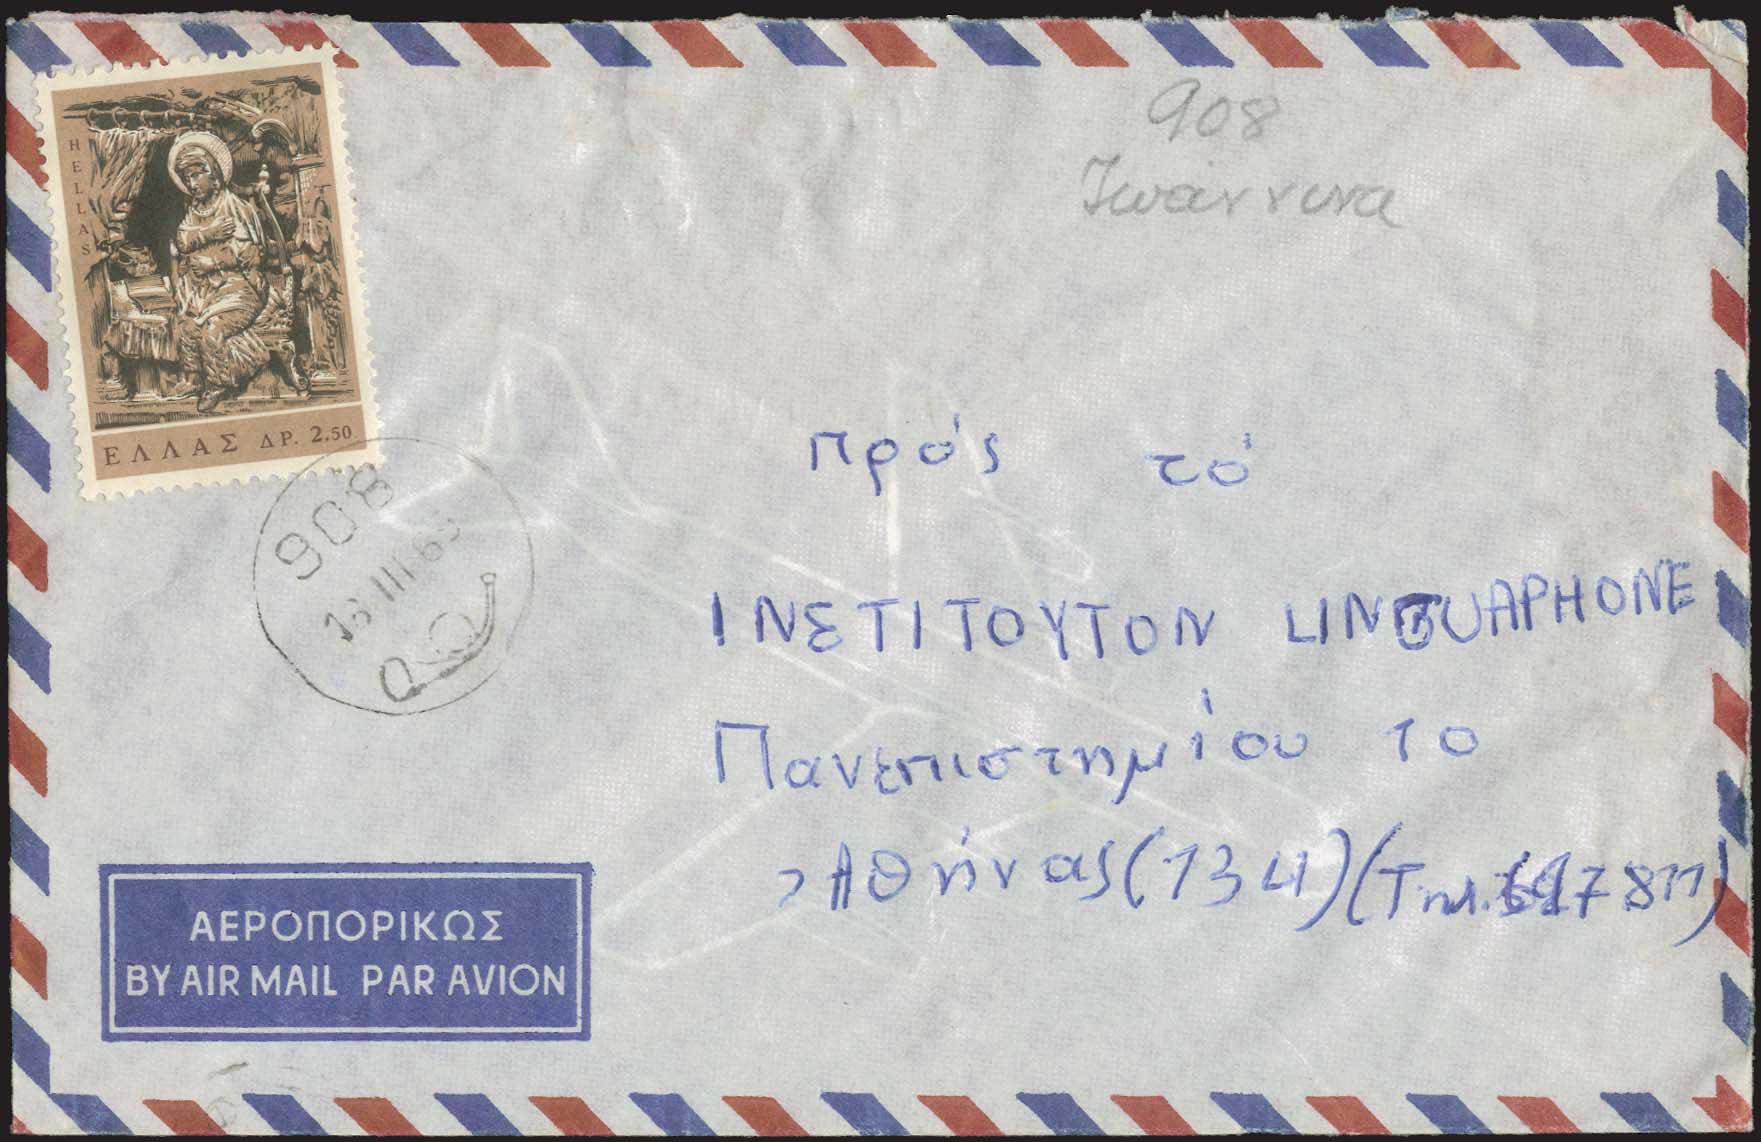 908
Ἰωάννινα
HELLAS
ΕΛΛΑΣ ΔΡ. 2.50
908
16 III 69
πρός τό
ΙΝΣΤΙΤΟΥΤΟΝ LINGUAPHONE
Πανεπιστημίου 10
Ἀθήνας (134) (Τηλ. 7811)
ΑΕΡΟΠΟΡΙΚΩΣ
BY AIR MAIL PAR AVION